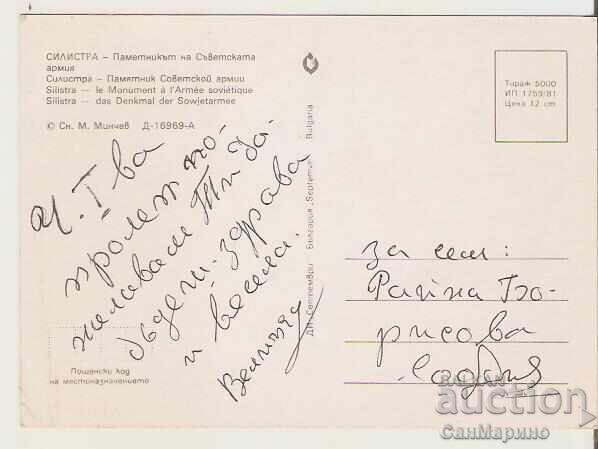 СИЛИСТРА – Паметникът на Съветската
армия
Силистра – Памятник Советской армии
Silistra – le Monument à l'Armée soviétique
Silistra – das Denkmal der Sowjetarmee
© Сн. М. Минчев Д-16969-А
Тираж 5000
ИП 1759-81
Цена 12 ст
ДИ „Септември" България „Septemvri" Bulgaria
Ч. I ва
пролет по-
желавам Ти да
бъдеш здрава
и весела.
за сем:
Райна Бо-
рисова
София
Пощенски код
на местоназначението
auction
СанМарино